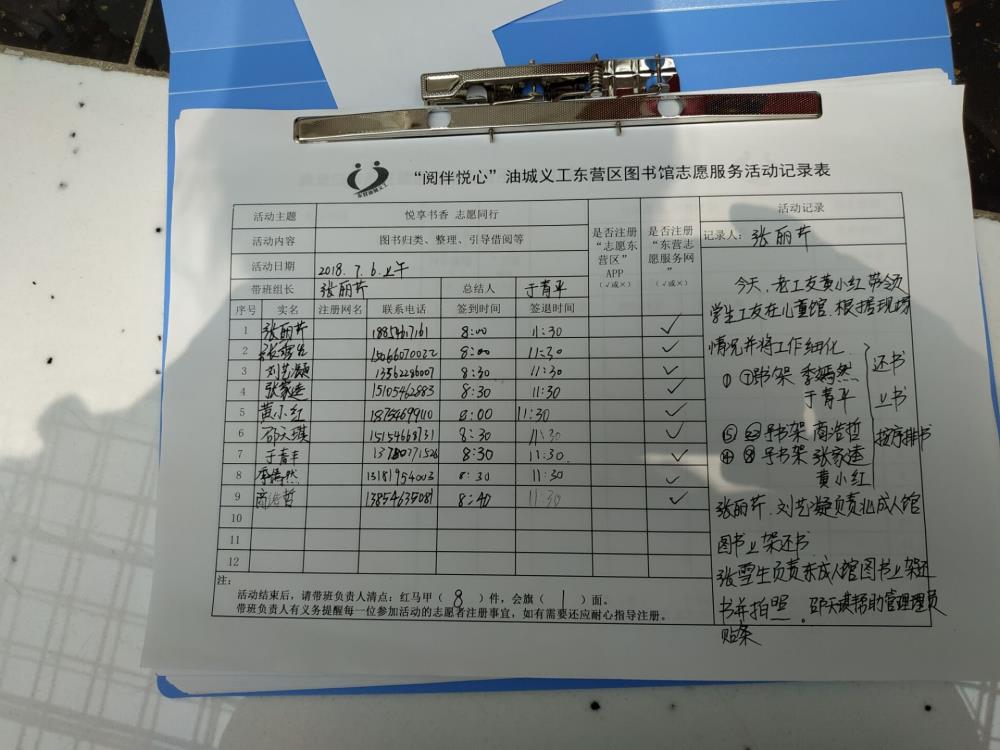 东营油城义工
“阅伴悦心”油城义工东营区图书馆志愿服务活动记录表
活动主题 悦享书香 志愿同行 是否注册“志愿东营区”APP（√或×） 是否注册“东营志愿服务网”（√或×） 活动记录
活动内容 图书归类、整理、引导借阅等 记录人：张丽芹
活动日期 2018.7.6.上午
带班组长 张丽芹 总结人 于青平
序号 实名 注册网名 联系电话 签到时间 签退时间
1 张丽芹 8:00 11:30 ✓
2 张雪生 15066070022 8:00 11:30 ✓
3 刘艺凝 13562296007 8:30 11:30 ✓
4 张家逵 15105462883 8:30 11:30 ✓
5 黄小红 18754699110 8:00 11:30 ✓
6 邵天琪 15154668731 8:30 11:30 ✓
7 于青平 13780771526 8:30 11:30 ✓
8 季嫣然 13181954003 8:30 11:30 ✓
9 商浩哲 13854635081 8:40 11:30 ✓
10
11
12
注：
活动结束后，请带班负责人清点：红马甲（8）件，会旗（1）面。
带班负责人有义务提醒每一位参加活动的志愿者注册事宜，如有需要还应耐心指导注册。
今天，老工友黄小红带领
学生工友在儿童馆.根据现场
情况并将工作细化.
季嫣然 还书
于青平 上书
号书架 商浩哲 按序排书
号书架 张家逵
黄小红
张丽芹.刘艺凝负责北成人馆
图书上架还书
张雪生负责东成人馆图书上架还
书并拍照。邵天琪帮助管理理员
贴条